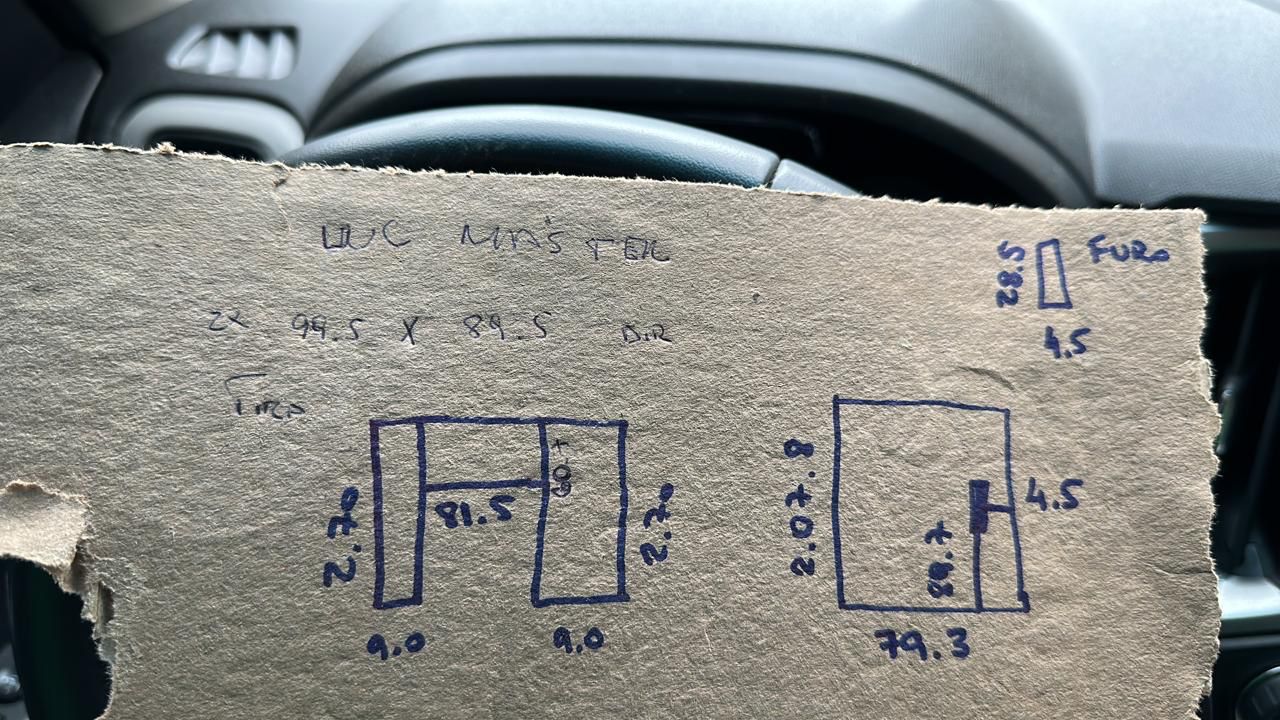 FURO
28.5
4.5
2x 99.5 X 89.5 DIR
2.70
81.5
60.7
2.70
9.0
9.0
2.07.8
4.5
89.7
79.3